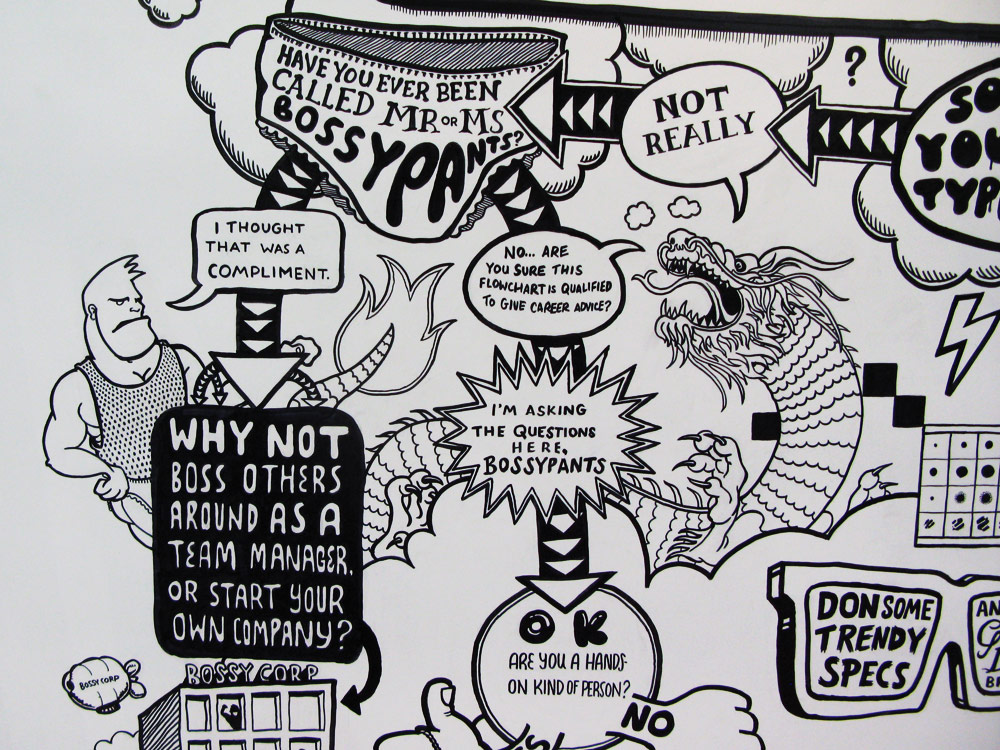 HAVE YOU EVER BEEN
CALLED MR OR MS
BOSSYPANTS?
NOT
REALLY
?
SO
YOU
I THOUGHT
THAT WAS A
COMPLIMENT.
NO... ARE
YOU SURE THIS
FLOWCHART IS QUALIFIED
TO GIVE CAREER ADVICE?
I'M ASKING
THE QUESTIONS
HERE,
BOSSYPANTS
WHY NOT
BOSS OTHERS
AROUND AS A
TEAM MANAGER.
OR START YOUR
OWN COMPANY?
BOSSY CORP
BOSSY CORP
OK
ARE YOU A HANDS-
ON KIND OF PERSON?
NO
DON SOME
TRENDY
SPECS